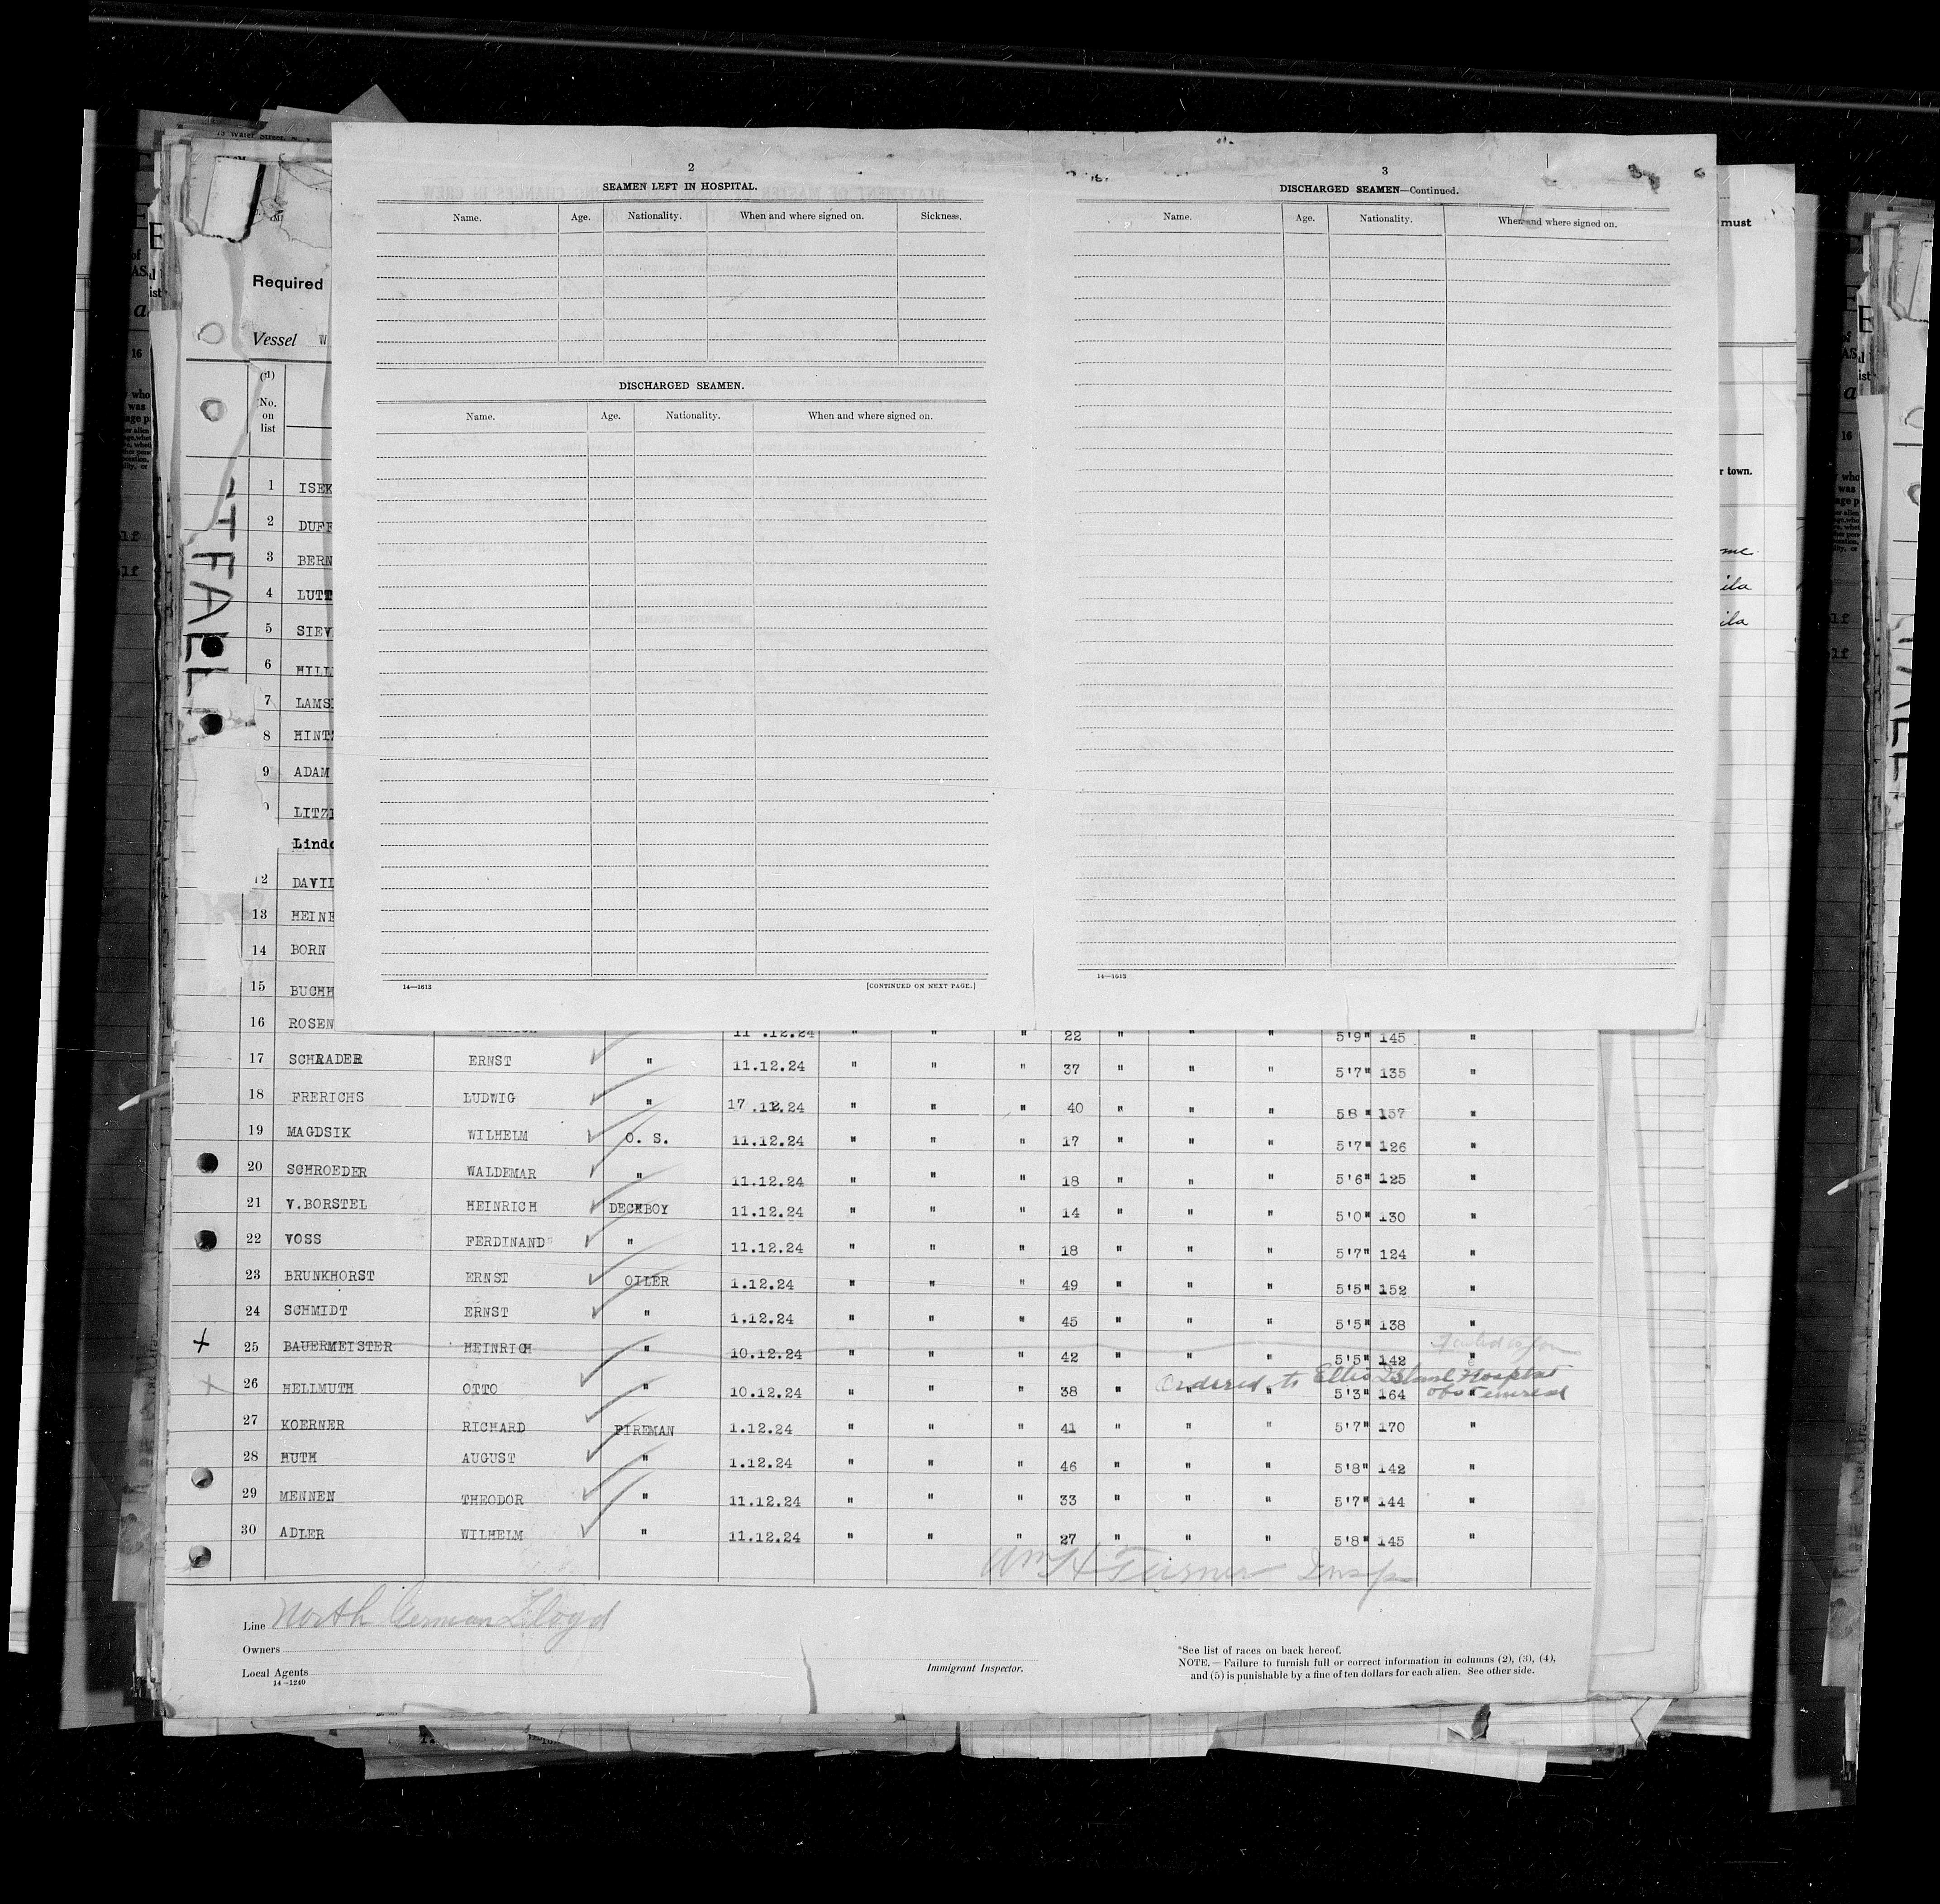 2
SEAMEN LEFT IN HOSPITAL.
Name. Age. Nationality. When and where signed on. Sickness.
DISCHARGED SEAMEN.
Name. Age. Nationality. When and where signed on.
14—1613 [CONTINUED ON NEXT PAGE.]
3
DISCHARGED SEAMEN—Continued.
Name. Age. Nationality. When and where signed on.
14—1613
must
r town.
Required
Vessel W
No. on list
1 ISEK
2 DUFF
3 BERN
4 LUTT
5 SIEV
6 HILL
7 LAMS
8 HINTZ
9 ADAM
LITZ
Lind
12 DAVID
13 HEINE
14 BORN
15 BUCHH
16 ROSEN 11.12.24 " " " 22 " " " 5'9" 145 "
17 SCHRADER ERNST " 11.12.24 " " " 37 " " " 5'7" 135 "
18 FRERICHS LUDWIG " 17.12.24 " " " 40 " " " 58 " 157 "
19 MAGDSIK WILHELM O. S. 11.12.24 " " " 17 " " " 5'7" 126 "
20 SCHROEDER WALDEMAR " 11.12.24 " " " 18 " " " 5'6" 125 "
21 V.BORSTEL HEINRICH DECKBOY 11.12.24 " " " 14 " " " 5'0" 130 "
22 VOSS FERDINAND " 11.12.24 " " " 18 " " " 5'7" 124 "
23 BRUNKHORST ERNST OILER 1.12.24 " " " 49 " " " 5'5" 152 "
24 SCHMIDT ERNST " 1.12.24 " " " 45 " " " 5'5" 138 "
25 BAUERMEISTER HEINRICH " 10.12.24 " " " 42 " " " 5'5" 142 "
Ordered to Ellis Island Hospital
26 HELLMUTH OTTO " 10.12.24 " " " 38 " " " 5'3" 164 "
27 KOERNER RICHARD FIREMAN 1.12.24 " " " 41 " " " 5'7" 170 "
28 HUTH AUGUST " 1.12.24 " " " 46 " " " 5'8" 142 "
29 MENNEN THEODOR " 11.12.24 " " " 33 " " " 5'7" 144 "
30 ADLER WILHELM " 11.12.24 " " " 27 " " " 5'8" 145 "
Wm H Turner Insp
Line North German Lloyd
Owners
Local Agents
14—1240
Immigrant Inspector.
*See list of races on back hereof.
NOTE.—Failure to furnish full or correct information in columns (2), (3), (4),
and (5) is punishable by a fine of ten dollars for each alien. See other side.